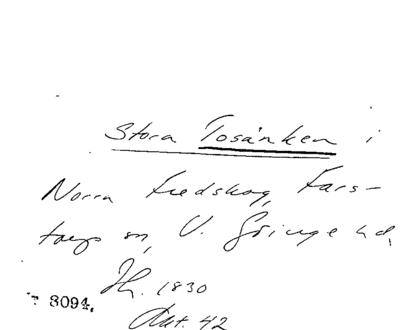 Stora Tosänken i
Norra Fredskog, Fars-
torps sn, V. Göinge hd,
Jh. 1830
8094.
Akt. 42